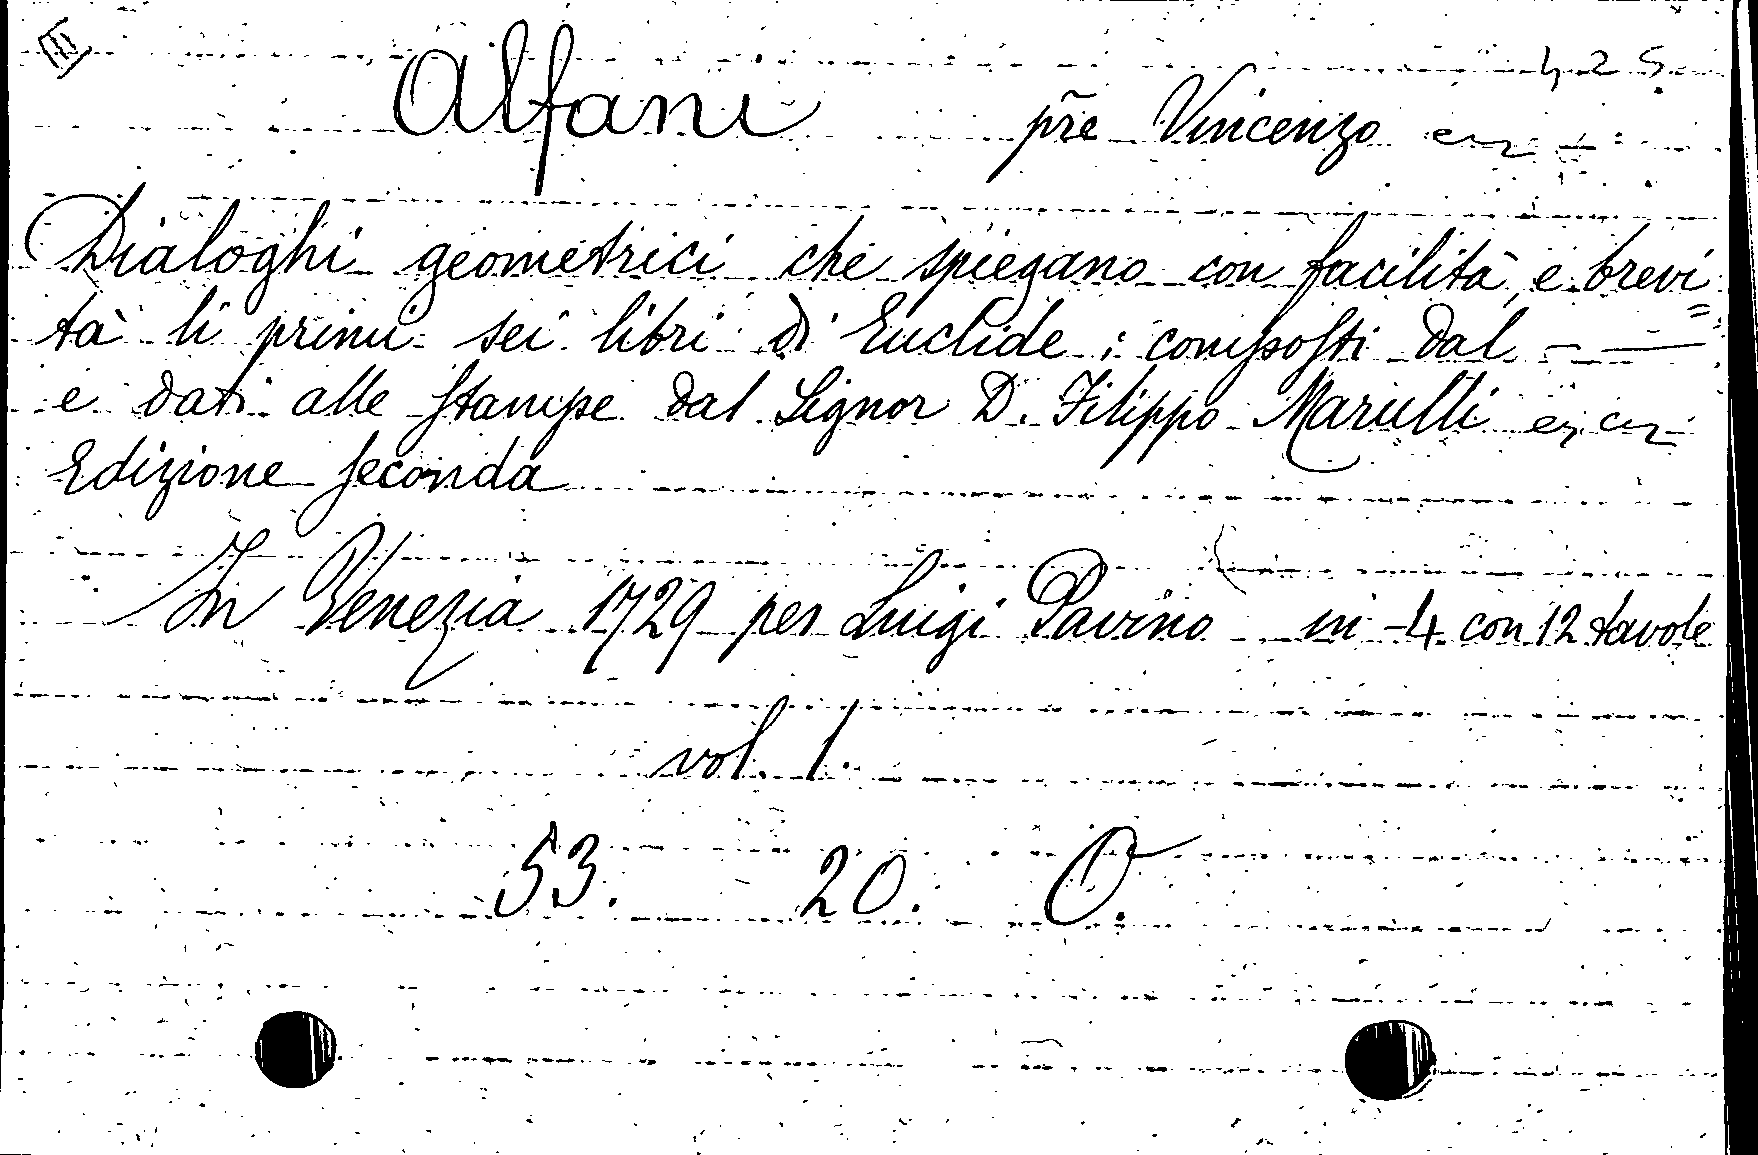 425
Alfani pr̃e Vincenzo
Dialoghi geometrici che spiegano con facilità, e brevi=
tà li primi sei libri di Euclide; composti dal —
e dati alle stampe dal Signor D. Filippo Marulli
Edizione seconda
In Venezia 1729 per Luigi Pavino in-4 con 12 tavole
vol. 1.
53. 20. O.